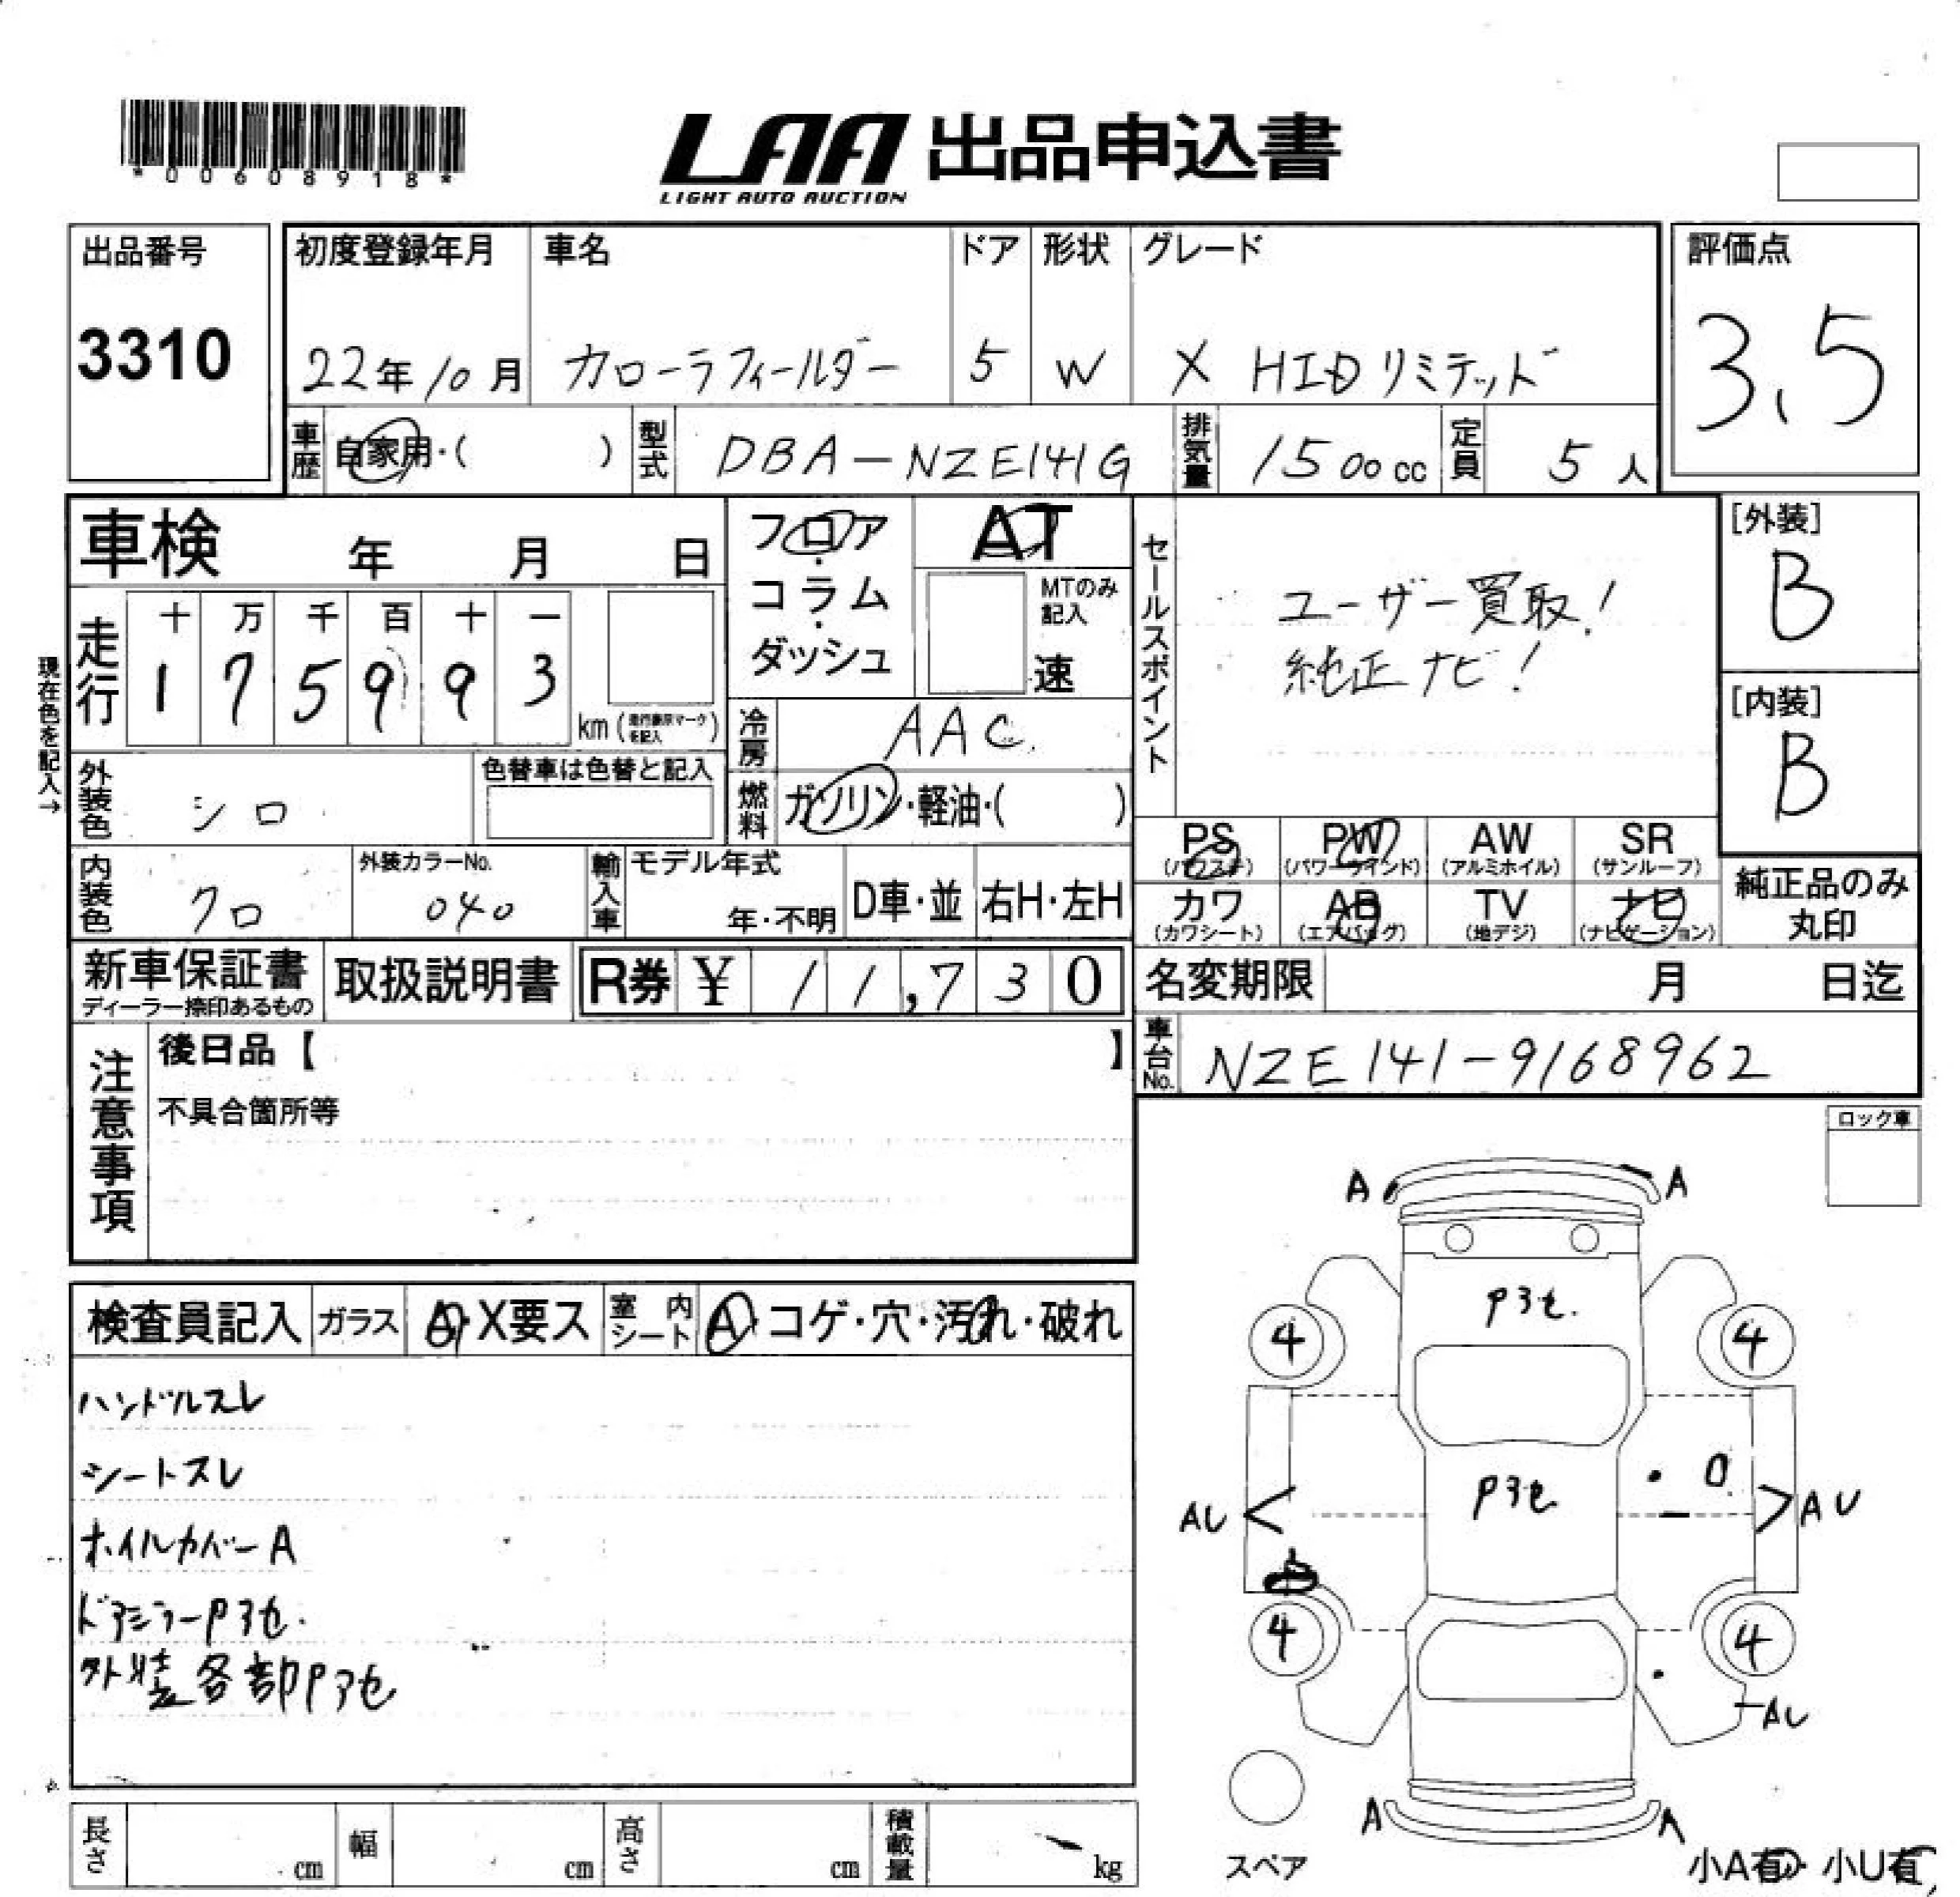 *00608918*
LAA 出品申込書
LIGHT AUTO AUCTION
出品番号
3310
初度登録年月
22年10月
車名
カローラフィールダー
ドア
5
形状
W
グレード
X HIDリミテッド
評価点
3.5
車歴
自家用・( )
型式
DBA-NZE141G
排気量
1500cc
定員
5人
車検 年 月 日
フロア・コラム・ダッシュ
AT
MTのみ記入
速
セールスポイント
ユーザー買取!
純正ナビ!
[外装]
B
[内装]
B
現在色を記入→
走行
十 万 千 百 十 一
1 7 5 9 9 3
km
冷房
AAC
外装色
シロ
色替車は色替と記入
燃料
ガソリン・軽油・( )
PS
(パワステ)
PW
(パワーウインド)
AW
(アルミホイル)
SR
(サンルーフ)
カワ
(カワシート)
AB
(エアバッグ)
TV
(地デジ)
ナビ
(ナビゲーション)
純正品のみ
丸印
内装色
クロ
外装カラーNo.
040
輸入車
モデル年式
年・不明
D車・並
右H・左H
新車保証書
ディーラー捺印あるもの
取扱説明書
R券 ¥ 11,730
名変期限 月 日迄
車台No.
NZE141-9168962
注意事項
後日品【 】
不具合箇所等
ロック車
検査員記入
ガラス
A・X要ス
室内シート
A・コゲ・穴・汚れ・破れ
ハンドルスレ
シートスレ
ホイルカバーA
ドアミラーPアセ.
外装各部Pアセ
A
A
Pアセ.
4
4
Pアセ
AU
AU
4
4
AU
A
A
スペア
小A有・小U有
長さ cm
幅 cm
高さ cm
積載量 kg